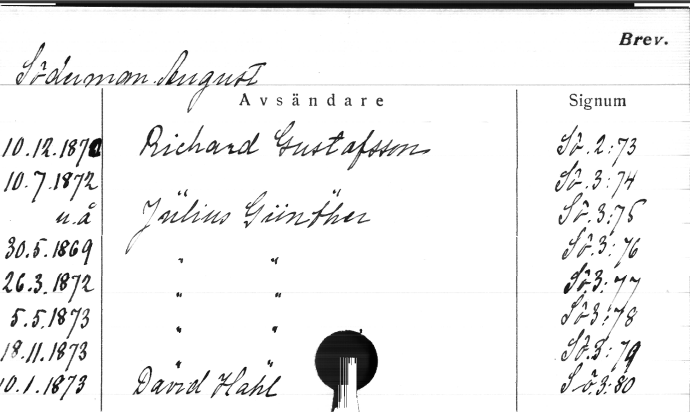 Brev.
Söderman August
Avsändare Signum
10.12.1872 Richard Gustafsson Sö. 2:73
10.7.1872 Sö. 3:74
u.å Július Günther Sö. 3:75
30.5.1869 " " Sö. 3:76
26.3.1872 " " Sö 3:77
5.5.1873 " " Sö 3:78
18.11.1873 " " Sö. 3:79
10.1.1873 David Hahl Sö. 3:80